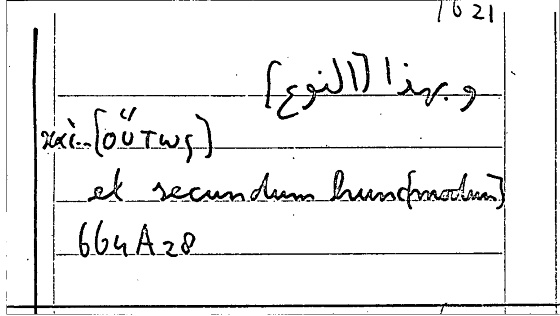 1621
وبهذا [النوع]
καὶ.. [οὕτως]
et secundum hunc [modum]
664 A 28